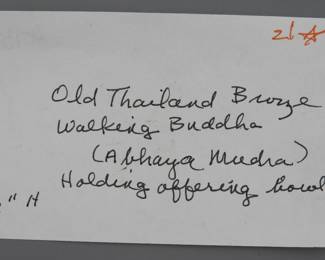 21
Old Thailand Bronze
Walking Buddha
(Abhaya Mudra)
Holding offering bowl
" H